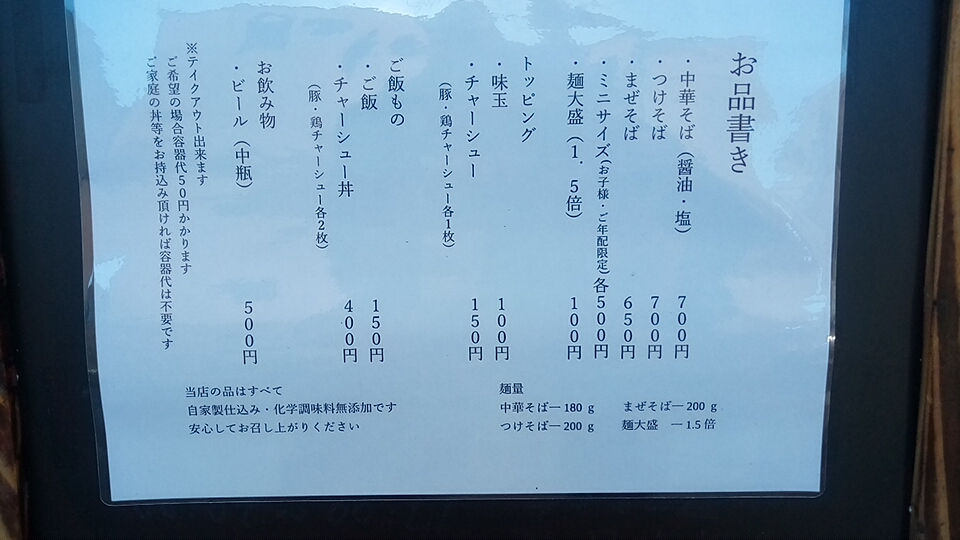 お品書き
・中華そば（醤油・塩） 700円
・つけそば 700円
・まぜそば 650円
・ミニサイズ(お子様・ご年配限定)各500円
・麺大盛（1．5倍） 100円
トッピング
・味玉 100円
・チャーシュー 150円
（豚・鶏チャーシュー各1枚）
ご飯もの
・ご飯 150円
・チャーシュー丼 400円
（豚・鶏チャーシュー各2枚）
お飲み物
・ビール（中瓶） 500円
※テイクアウト出来ます
ご希望の場合容器代50円かかります
ご家庭の丼等をお持込み頂ければ容器代は不要です
麺量
中華そば― 180 g まぜそば― 200 g
つけそば― 200 g 麺大盛 ― 1.5 倍
当店の品はすべて
自家製仕込み・化学調味料無添加です
安心してお召し上がりください